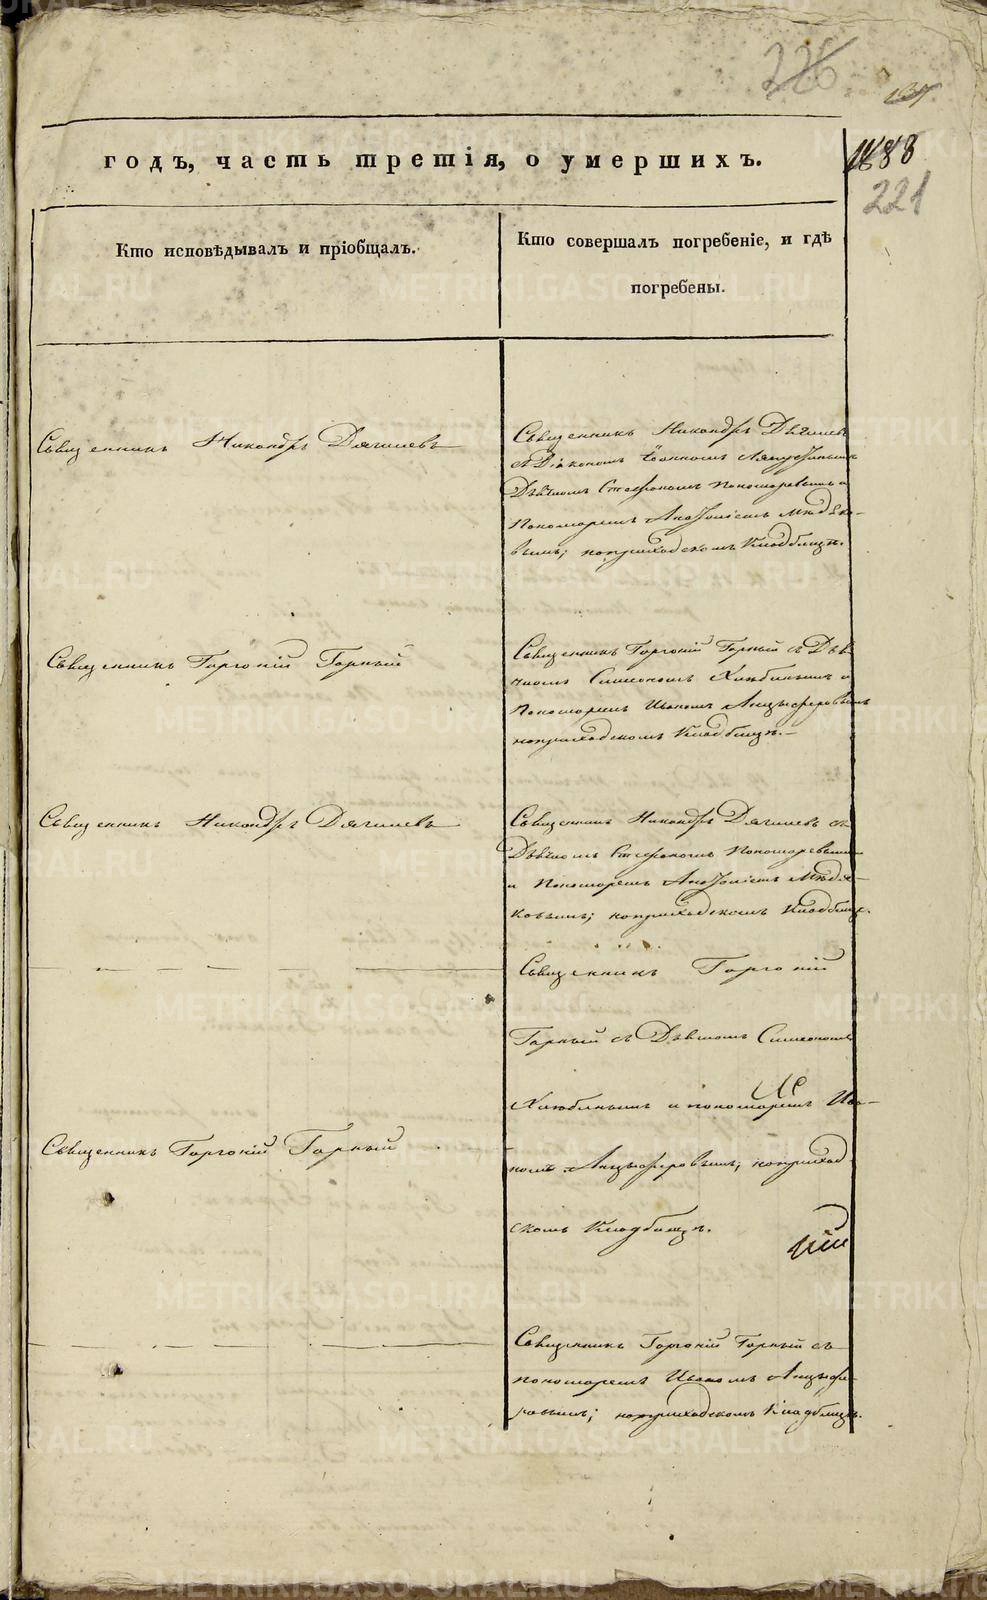 226
137
годъ, часть третія, о умершихъ.
188
221
Кто исповѣдывалъ и пріобщалъ.
Кто совершалъ погребеніе, и гдѣ
погребены.
Священникъ Никандръ Дягилевъ
Священникъ Никандръ Дягилевъ
съ Діакономъ Іоанномъ
Дьячкомъ Стефаномъ Пономаревымъ и
Пономаремъ Анатоліемъ Мѣдя-
вымъ; наприходскомъ Кладбищѣ.
Священникъ Горгоній Горный
Священникъ Горгоній Горный съ Дья-
чкомъ Симеономъ Хлюбинымъ и
Пономаремъ Иваномъ Анцыферовымъ
наприходскомъ Кладбищѣ.
Священникъ Никандръ Дягилевъ
Священникъ Никандръ Дягилевъ съ
Дьячкомъ Стефаномъ Пономаревымъ
и Пономаремъ Анатоліемъ Мѣдя-
ковымъ; наприходскомъ Кладбищѣ.
Священникъ Горгоній
Горный съ Дьячкомъ Симеономъ
Хлюбинымъ и пономаремъ Ива-
Священникъ Горгоній Горный
номъ Анцыферовымъ; наприход-
скомъ Кладбищѣ.
ній
Священникъ Горгоній Горный съ
пономаремъ Иваномъ Анцыфе-
ровымъ; наприходскомъ Кладбищѣ.
METRIKI.GASO-URAL.RU